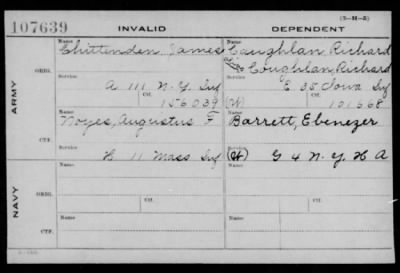 107639 INVALID DEPENDENT (3-M-5)
Name Name
Chittenden, James Caughlan, Richard
Coughlan, Richard
ORIG. Service Service
A 111 N.Y. Inf E 35 Iowa Inf
Ctf. Ctf.
156039 (W) 101668
ARMY
Name Name
Noyes, Augustus F Barrett, Ebenezer
CTF. Service Service
H 11 Mass Inf (W) G 4 N.Y. H A
NAVY
ORIG. Name Ctf. Name Ctf.
Service Service
CTF. Name Name
Service Service